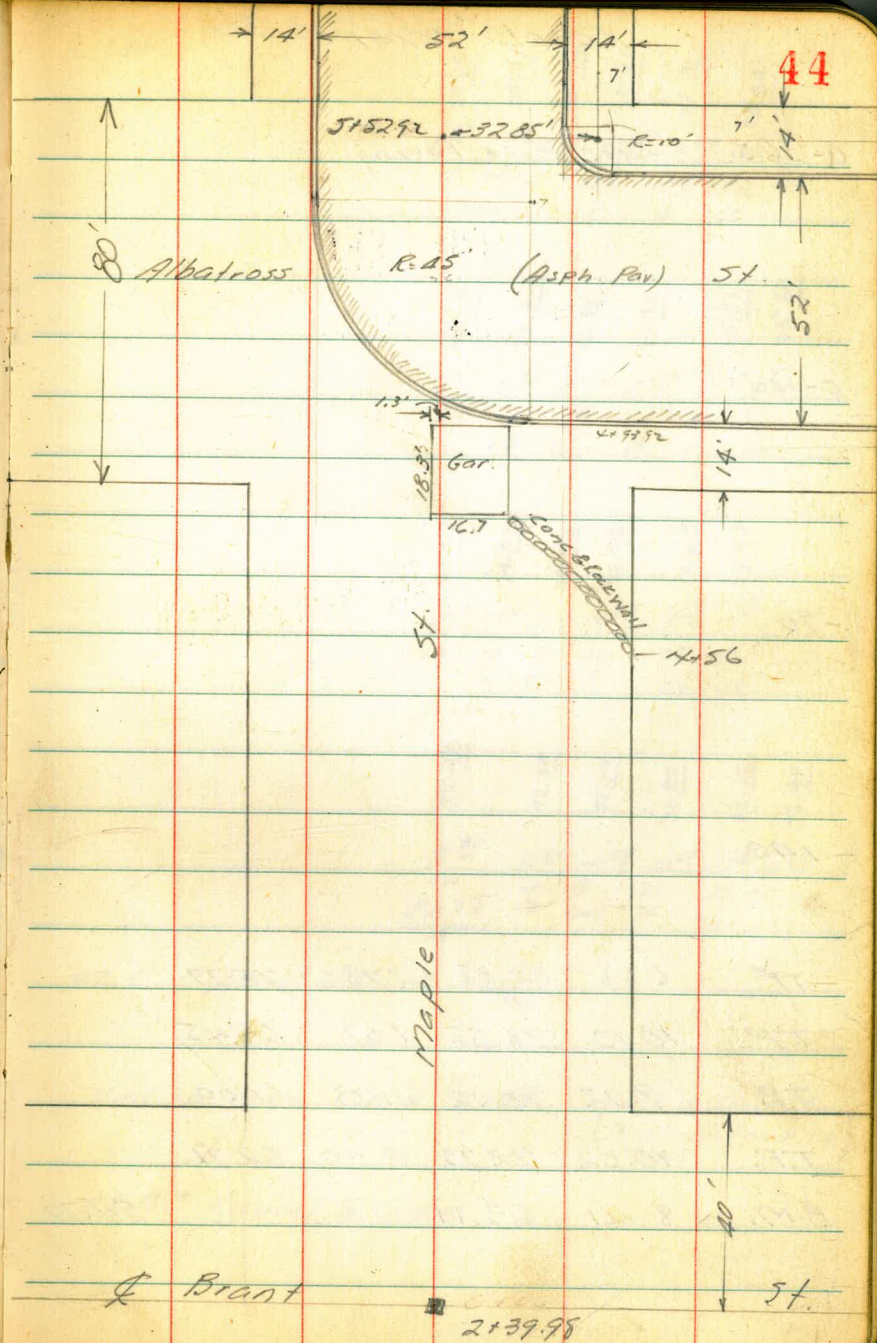 14' 52' 14'
44
7'
5+52.92 32.85' R=10' 7' 14'
80' Albatross R=45' (Asph. Pav) St.
52'
1.3'
4+93.92
18.3' Gar. 14'
16.7
Conc Block Wall
St. 4+56
Maple
40'
℄ Brant St.
2+39.98